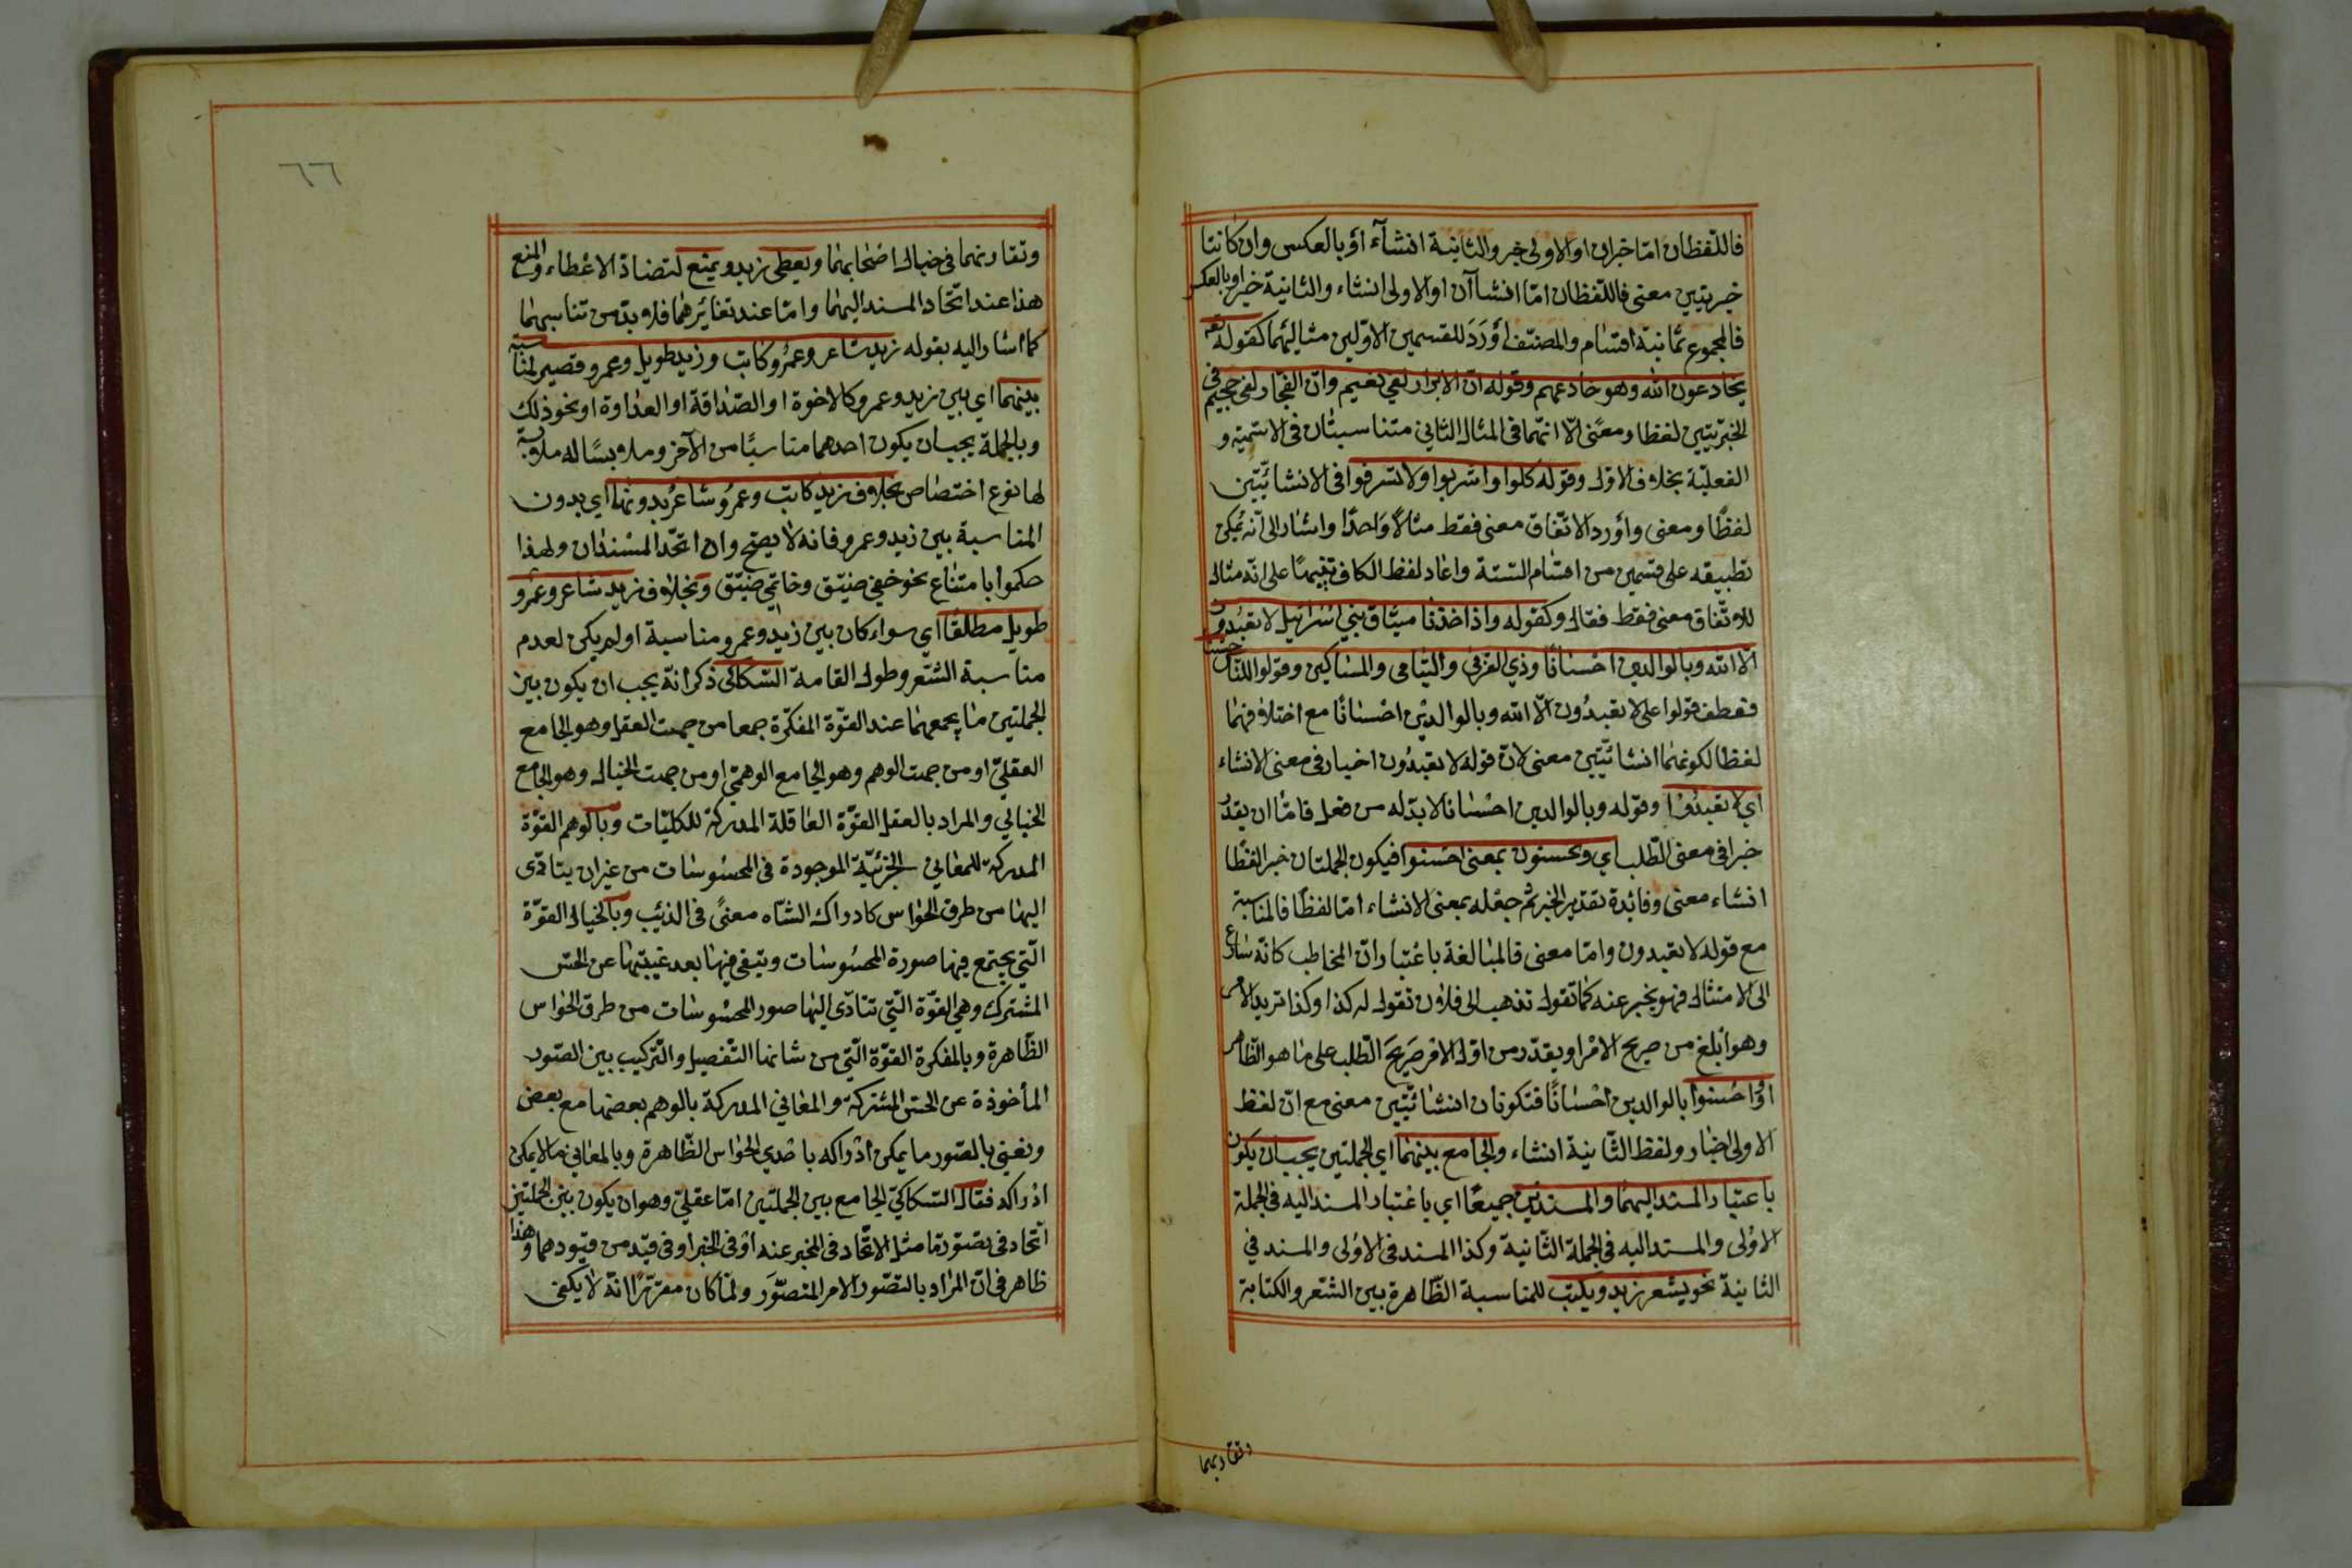 فاللفظان امّا خبران او الاولى خبر والثانية انشآء أو بالعكس وان كانتا
خبريتين معنى فاللفظان امّا انشاآن او الاولى انشاء والثانية خبر او بالعكس
فالمجموع ثمانية اقسام والمصنّف أوْرَدَ للقسمين الاوّلين مثاليهما كقوله تع
يخادعون الله وهو خادعهم وقوله انّ الابرار لفي نعيم وانّ الفجّار لفي جحيم في
الخبريّتين لفظا ومعنًى الّا انّهما في المثال الثاني متناسبتان في الاسميّة و
الفعليّة بخلاف الاوّل وقوله كلوا واشربوا ولا تسرفوا في الانشائيّتين
لفظًا ومعنى وأورد الاتّفاق معنى فقط مثالًا وَاحدًا واشار الى أنّه يُمكن
تطبيقه على قسمين من اقسام الستّة واعاد لفظ الكاف تنبيهًا على انّه مثال
للاوتّفاق معنى فقط فقال وكقوله واذ اخذنا ميثاق بني اسْرائيل لا تعبُدون
الّا الله وبالوالدين احْسانًا وذي القربى واليتامى والمساكين وقولوا للنّاس حسنا
فعطف قولوا على لا تعبدُون الّا الله وبالوالديْن احْسانًا مع اختلافهما
لفظا لكونهما انشائيّتين معنى لانّ قوله لا تعبدُون اخبار في معنى الانشاء
اي لا تعبدُوا وقوله وبالوالدين احْسانا لا بدّ له من فعل فامّا ان يقدّر
خبرا في معنى الطّلب اي وتحسنون بمعنى احسنوا فيكون الجملتان خبرا لفظًا
انشاء معنى وفائدة تقدير الخبر ثم جعْله بمعنى الانشاء امّا لفظًا فالمناسبة
مع قوله لا تعبدون وامّا معنى فالمبالغة باعْتبار انّ المخاطب كانّه سارع
الى الامتثال فهو يخبر عنه كما تقول تذهب الى فلان تقول له كذا وكذا تريد الامر
وهو أبلغ من صريح الامْر او يقدّر من اوّل الامْر صَريحَ الطّلب على ما هو الظّاهر
اوْ احْسنوا بالوالدين احْسانًا فتكونان انشائيّتين معنى مع انّ لفظ
الاولى اخبار ولفظ الثّانية انشاء والجامع بينهما اي الجملتين يجب ان يكون
باعتبار المسند اليهما والمسندين جميعًا اي باعْتبار المسند اليه في الجملة
الاوْلى والمسند اليه في الجملة الثّانية وكذا المسند في الاوْلى والمسند في
الثانية نحو يشعر زيد ويكتب للمناسبة الظّاهرة بين الشّعر والكتابة
وتقارنهما
٦٦
وتقارنهما في خيال اصْحابهما ويعطي زيد ويمنع لتضادّ الاعْطاء والمنع
هذا عند اتّحاد المسند اليهما وامّا عند تغايُرهما فلا بدّ من تناسبهما
كما اشار اليه بقوله زيد شاعر وعمْرو كاتب وزيد طويل وعمرو قصير لمناسبة
بينهما اي بين زيد وعمرو كالاخوة او الصّداقة او العداوة او نحو ذلك
وبالجملة يجب ان يكون احدهما مناسبًا من الآخر وملابسًا له ملابسة
لها نوع اختصاص بخلاف زيد كاتب وعمرُو شاعرٌ بدونها اي بدون
المناسبة بين زيد وعمرو فانه لا يصحّ وان اتّحد المسْندان ولهذا
حكموا بامتناع نحو خفي ضيّق وخاتمي ضيّق وبخلاف زيد شاعر وعمْرو
طويل مطلقًا اي سواء كان بين زيد وعمرو مناسبة او لم يكن لعدم
مناسبة الشّعر وطول القامة السّكاكي ذكر أنّه يجب ان يكون بين
الجملتين ما يجمعهما عند القوّة المفكّرة جمعا من جهت العقل وهو الجامع
العقليّ او من جهت الوهم وهو الجامع الوهميّ او من جهت الخيال وهو الجامع
الخيالي والمراد بالعقل القوّة العاقلة المدركة للكليّات وبالوهم القوّة
المدركة للمعاني الجزئيّة الموجودة في المحسُوسَات من غير ان يتادّى
اليها من طرق الحواس كادراك الشّاه معنًى في الذئب وبالخيال القوّة
الّتي يجتمع فيها صورة المحسُوسات وتبقى فيها بعد غيبتها عن الحسّ
المشترك وهي القوّة الّتي تتادّى اليها صور المحسُوسات من طرق الحواس
الظّاهرة وبالمفكرة القوّة الّتي من شانها التّفصيل والتّركيب بين الصّور
المأخوذة عن الحسّ المشترك والمعاني المدركة بالوهم بعضها مع بعض
ونعني بالصّور ما يمكن ادْراكه باحْدي الحواس الظّاهرة وبالمعاني ما لا يمكن
ادْراكه فقال السّكاكيّ الجامع بين الجملتين امّا عقليّ وهو ان يكون بين الجملتين
اتّحاد في تصوّر مّا مثل الاتّحاد في المخبر عنه اوْ في الخبر او في قيْد من قيودهما وهذا
ظاهر في انّ المراد بالتصوّر الامر المتصوَّر ولمّا كان مقرّرًا انّه لا يكفي